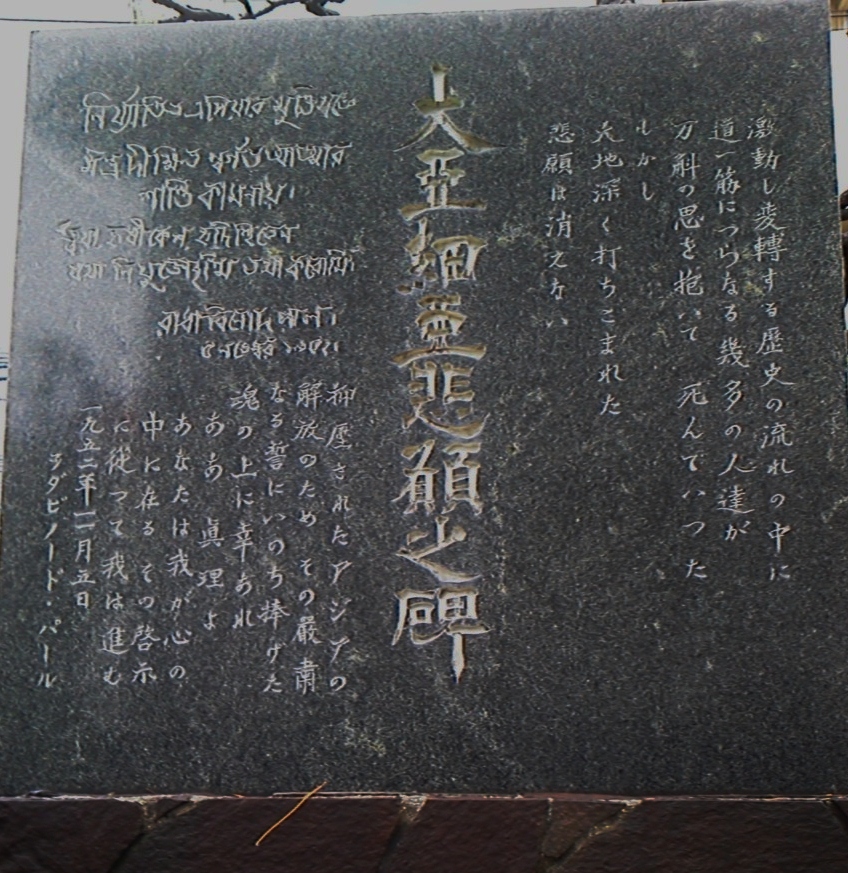 激動し変轉する歴史の流れの中に
道一筋につらなる幾多の人達が
万斛の思を抱いて 死んでいつた
しかし
大地深く打ちこまれた
悲願は消えない
大亞細亞悲願之碑
নির্যাতিত এশিয়ার মুক্তিযজ্ঞে
মন্ত্রদীক্ষিত আত্মার
শান্তি কামনায়।
ত্বয়া হৃষীকেশ হৃদিস্থিতেন
যথা নিযুক্তোহস্মি তথা করোমি।
রাধাবিনোদ পাল।
৫ নভেম্বর ১৯৫২।
抑壓されたアジアの
解放のため その嚴肅
なる誓にいのち捧げた
魂の上に幸あれ
ああ 眞理よ
あなたは我が心の
中に在る その啓示
に従つて我は進む
一九五二年一一月五日
ラダビノード・パール